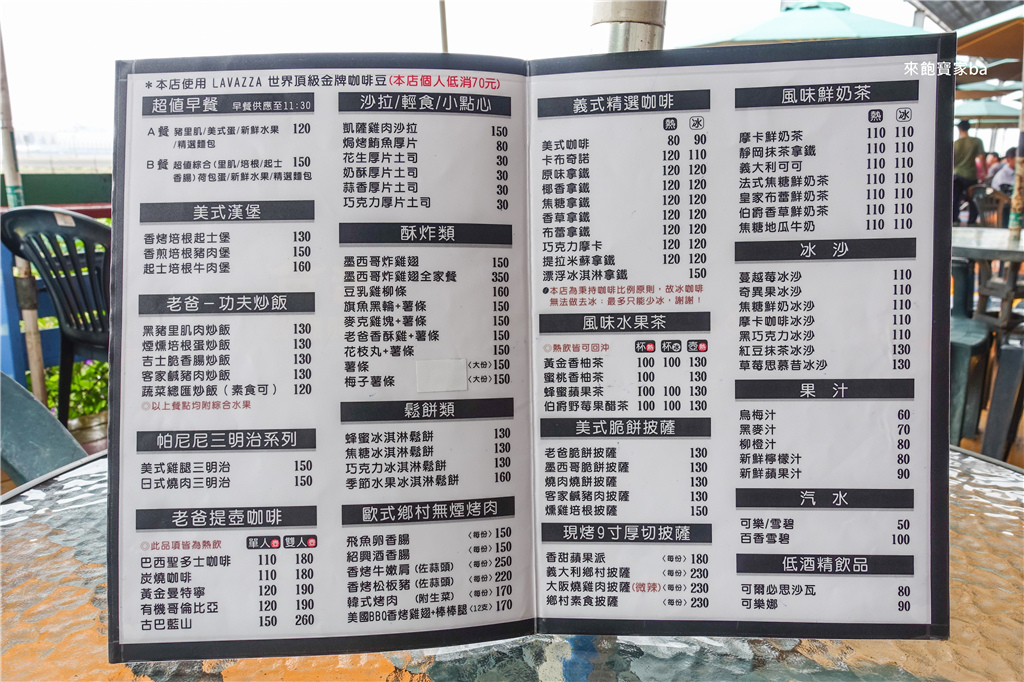 來飽寶家ba
＊本店使用 LAVAZZA 世界頂級金牌咖啡豆(本店個人低消70元)
超值早餐 早餐供應至11:30
A餐 豬里肌/美式蛋/新鮮水果 120
/精選麵包
B餐 超值綜合(里肌/培根/起士 150
香腸)荷包蛋/新鮮水果/精選麵包
美式漢堡
香烤培根起士堡 130
香煎培根豬肉堡 150
起士培根牛肉堡 160
老爸－功夫炒飯
黑豬里肌肉炒飯 130
煙燻培根蛋炒飯 130
吉士脆香腸炒飯 130
客家鹹豬肉炒飯 130
蔬菜總匯炒飯(素食可) 120
◎以上餐點均附綜合水果
帕尼尼三明治系列
美式雞腿三明治 150
日式燒肉三明治 150
老爸提壺咖啡
◎此品項皆為熱飲 單人 雙人
巴西聖多士咖啡 110 180
炭燒咖啡 110 180
黃金曼特寧 120 190
有機哥倫比亞 120 190
古巴藍山 150 260
沙拉/輕食/小點心
凱薩雞肉沙拉 150
焗烤鮪魚厚片 80
花生厚片土司 30
奶酥厚片土司 30
蒜香厚片土司 30
巧克力厚片土司 30
酥炸類
墨西哥炸雞翅 150
墨西哥炸雞翅全家餐 350
豆乳雞柳條 160
旗魚黑輪+薯條 150
麥克雞塊+薯條 150
老爸香酥雞+薯條 150
花枝丸+薯條 150
薯條 (大份)150
梅子薯條 (大份)150
鬆餅類
蜂蜜冰淇淋鬆餅 130
焦糖冰淇淋鬆餅 130
巧克力冰淇淋鬆餅 130
季節水果冰淇淋鬆餅 160
歐式鄉村無煙烤肉
飛魚卵香腸 (每份)150
紹興酒香腸 (每份)150
香烤牛嫩肩(佐蒜頭) (每份)250
香烤松板豬(佐蒜頭) (每份)220
韓式烤肉 (附生菜) (每份)170
美國BBQ香烤雞翅+棒棒腿(12支)170
義式精選咖啡
熱 冰
美式咖啡 80 90
卡布奇諾 120 110
原味拿鐵 120 120
椰香拿鐵 120 120
焦糖拿鐵 120 120
香草拿鐵 120 120
布蕾拿鐵 120 120
巧克力摩卡 120 120
提拉米蘇拿鐵 120 120
漂浮冰淇淋拿鐵 150
●本店為秉持咖啡比例原則，故冰咖啡
無法做去冰；最多只能少冰，謝謝！
風味水果茶
◎熱飲皆可回沖 杯熱 杯冰 壺熱
黃金香柚茶 100 100 130
蜜桃香柚茶 100 130
蜂蜜蘋果茶 100 100 130
伯爵野莓果醋茶 100 100 130
美式脆餅披薩
老爸脆餅披薩 130
墨西哥脆餅披薩 130
燒肉燒餅披薩 130
客家鹹豬肉披薩 130
燻雞培根披薩 150
現烤9寸厚切披薩
香甜蘋果派 (每份)180
義大利鄉村披薩 (每份)230
大阪燒雞肉披薩(微辣)(每份)230
鄉村素食披薩 (每份)230
風味鮮奶茶
熱 冰
摩卡鮮奶茶 110 110
靜岡抹茶拿鐵 110 110
義大利可可 110 110
法式焦糖鮮奶茶 110 110
皇家布蕾鮮奶茶 110 110
伯爵香草鮮奶茶 110 110
焦糖地瓜牛奶 110 110
冰 沙
蔓越莓冰沙 110
奇異果冰沙 110
焦糖鮮奶冰沙 110
摩卡咖啡冰沙 110
黑巧克力冰沙 110
紅豆抹茶冰沙 130
草莓思慕昔冰沙 130
果 汁
烏梅汁 60
黑麥汁 70
柳橙汁 80
新鮮檸檬汁 80
新鮮蘋果汁 90
汽 水
可樂/雪碧 50
百香雪碧 100
低酒精飲品
可爾必思沙瓦 80
可樂娜 90